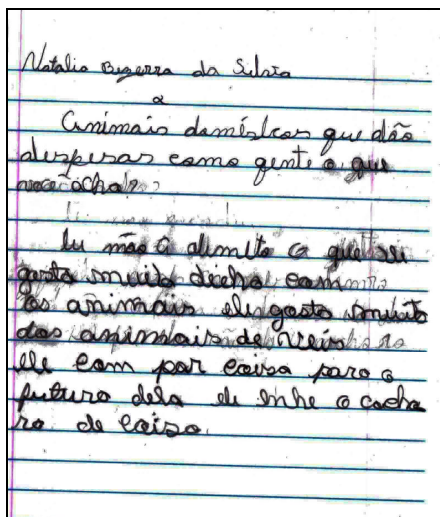 Natalia Bezerra da Silvia
Animais doméstcos que dão
despesas como gente o que
você acha?
Eu não
gosto muito
os animais ele gosta muito
dos animais de
ele com par coisa para o
futuro dela ele enhe o cacho
ro de coisa